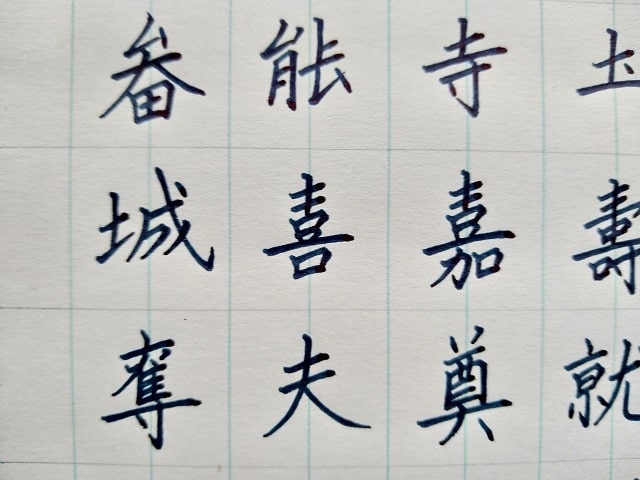 畚能寺土
城喜嘉壽
奪夫奠就